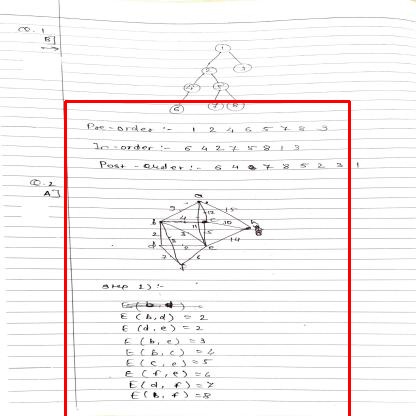 Q.1
B]
1
2 3
4 5
6 7 8
Pre-order :- 1 2 4 6 5 7 8 3
In-order :- 6 4 2 7 5 8 1 3
Post-order :- 6 4 7 8 5 2 3 1
Q.2
A]
a
9 12 15
b 4 c 10 h
11 5
2 3 14
d 2 e
7 8 6
f
Step 1) :-
E (b,d) = 2
E (d,e) = 2
E (b,e) = 3
E (b,c) = 4
E (c,e) = 5
E (f,e) = 6
E (d,f) = 7
E (b,f) = 8